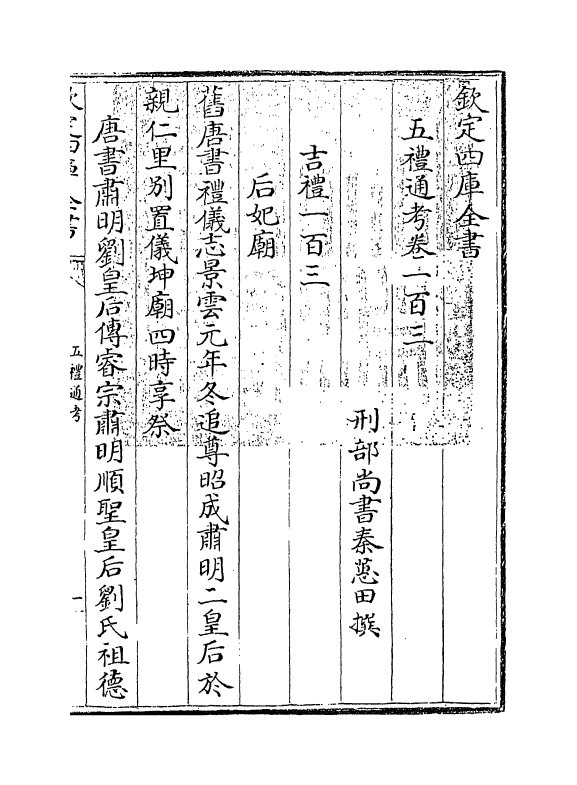 欽定四庫全書
五禮通考卷一百三
刑部尚書秦蕙田撰
吉禮一百三
后妃廟
舊唐書禮儀志景雲元年冬追尊昭成肅明二皇后於
親仁里别置儀坤廟四時享祭
唐書肅明劉皇后傳睿宗肅明順聖皇后劉氏祖德
欽定四庫全書
五禮通考
一